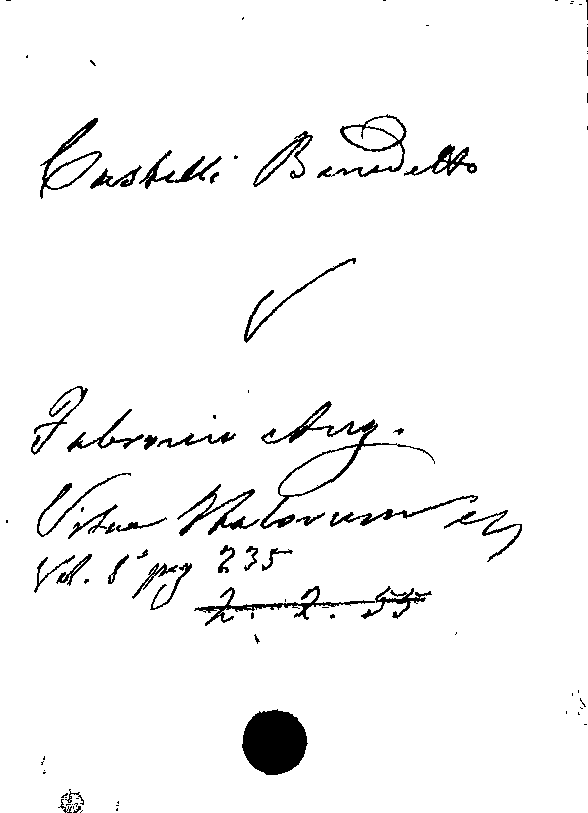 Castelli Benedetto
V
Fabronio Ang.
Vitae Italorum etc
Vol. 8° pag 235
2. 2. 55